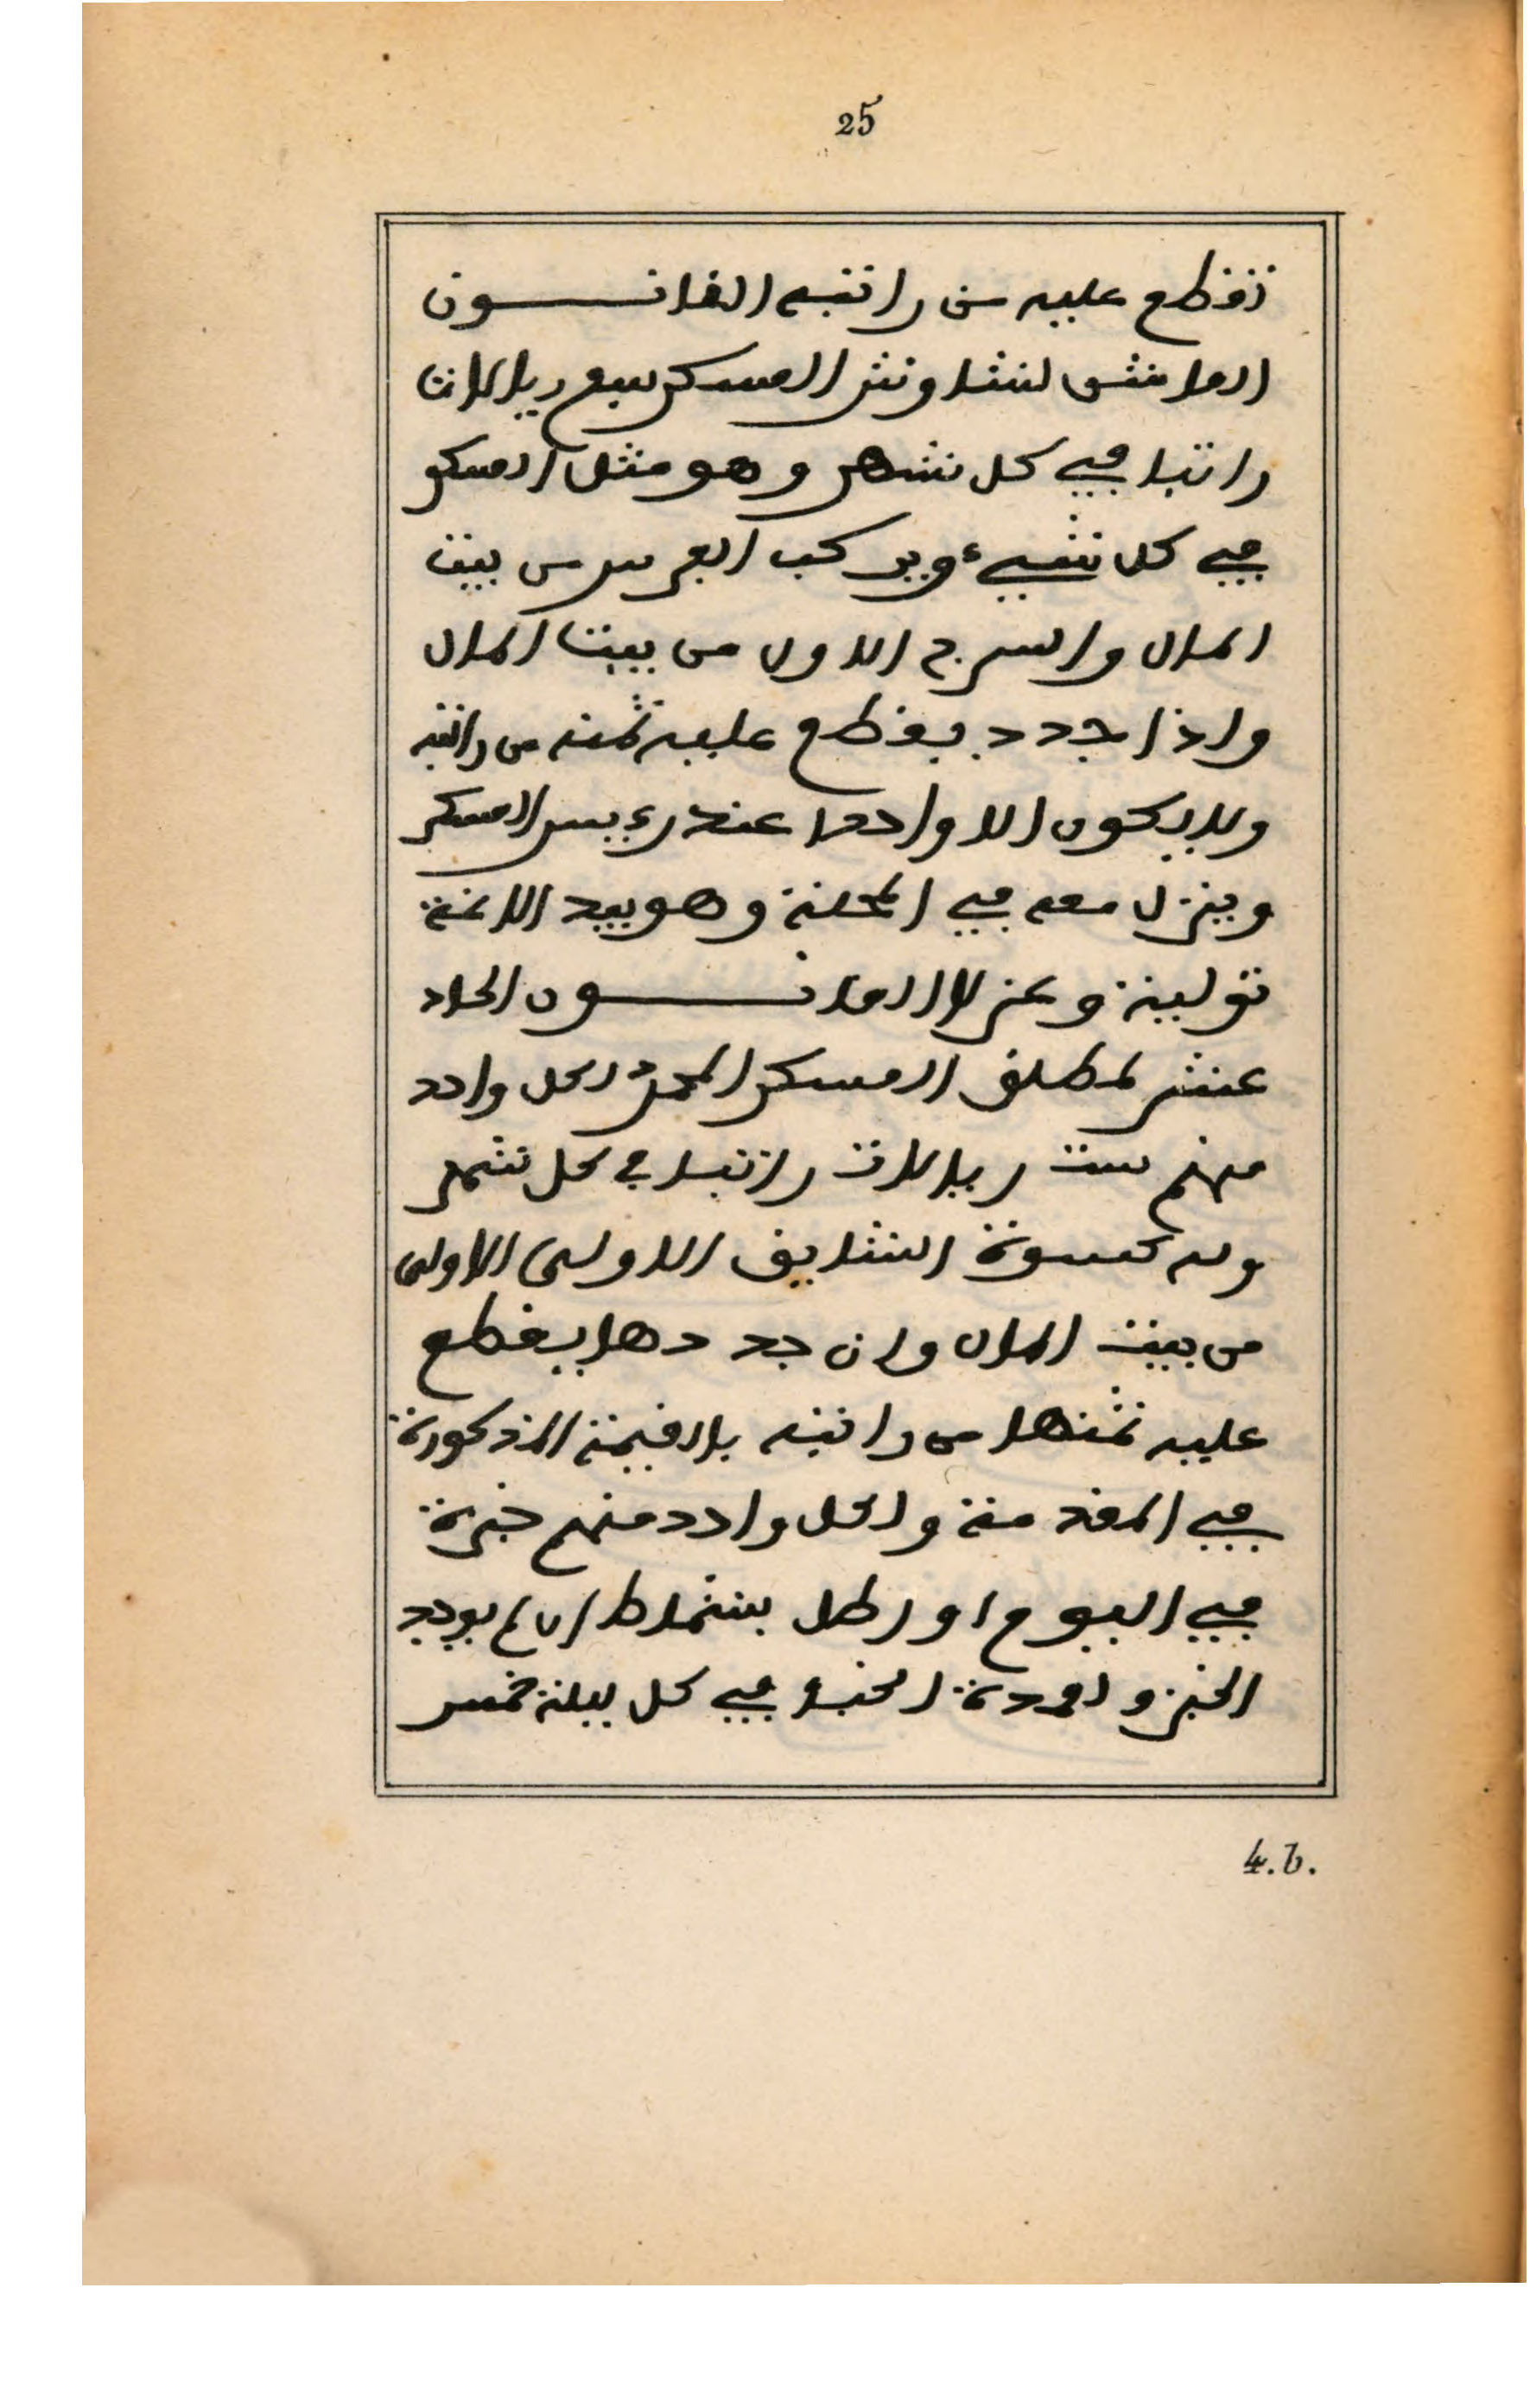 25
تقطع عليه من راتبه القانون
العاشر لشاوش العسكر سبع ريالات
راتبا في كل شهر وهو مثل العسكر
في كل شيء ويركب الفرس من بيت
المال والسرج الاول من بيت المال
واذا جدد يقطع عليه ثمنه من راتبه
ولا يكون الا واحدا عند رئيس العسكر
وينزل معه في المحلة وهو بيد الاغة
تولية وعزلا القانون الحاد
عشر لمطلق العسكر المحمدي لكل واحد
منهم ست ريالات راتبا في كل شهر
وله كسوة الشايق الاولى الاولى
من بيت المال وان جددها يقطع
عليه ثمنها من راتبه بالقيمة المذكورة
في المقدمة ولكل واحد منهم خبزة
في اليوم او رطل بشماط ان لم يوجد
الخبز ولعدة الخباء في كل ليلة خمس
4.b.